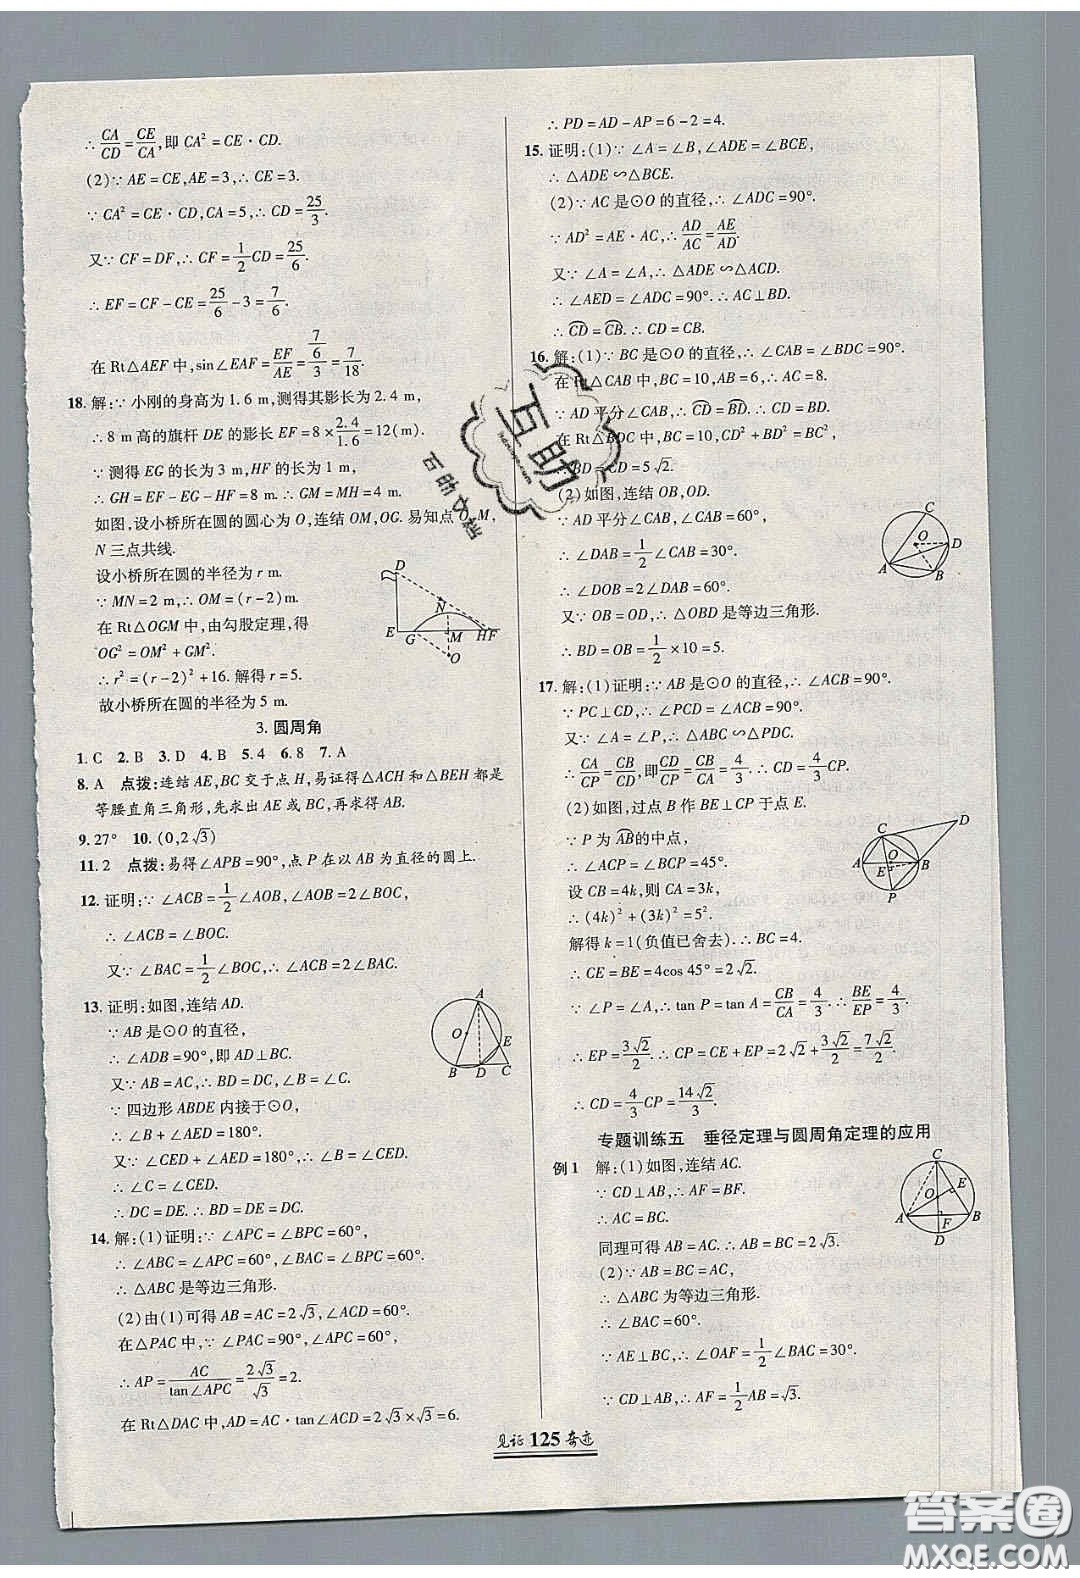 ∴ CA/CD = CE/CA, 即 CA² = CE · CD.
(2)∵ AE = CE, AE = 3, ∴ CE = 3.
∵ CA² = CE · CD, CA = 5, ∴ CD = 25/3.
又∵ CF = DF, ∴ CF = 1/2 CD = 25/6.
∴ EF = CF − CE = 25/6 − 3 = 7/6.
在 Rt△AEF 中, sin∠EAF = EF/AE = (7/6)/3 = 7/18.
18. 解:∵ 小刚的身高为 1.6 m, 测得其影长为 2.4 m,
∴ 8 m 高的旗杆 DE 的影长 EF = 8 × 2.4/1.6 = 12(m).
∵ 测得 EG 的长为 3 m, HF 的长为 1 m,
∴ GH = EF − EG − HF = 8 m. ∴ GM = MH = 4 m.
如图, 设小桥所在圆的圆心为 O, 连结 OM, OG. 易知点 O, M,
N 三点共线.
设小桥所在圆的半径为 r m.
∵ MN = 2 m, ∴ OM = (r − 2) m.
在 Rt△OGM 中, 由勾股定理, 得
OG² = OM² + GM².
∴ r² = (r − 2)² + 16. 解得 r = 5.
故小桥所在圆的半径为 5 m.
D
N
E G M HF
O
3. 圆周角
1. C 2. B 3. D 4. B 5. 4 6. 8 7. A
8. A 点拨:连结 AE, BC 交于点 H, 易证得△ACH 和△BEH 都是
等腰直角三角形, 先求出 AE 或 BC, 再求得 AB.
9. 27° 10. (0, 2√3)
11. 2 点拨:易得∠APB = 90°, 点 P 在以 AB 为直径的圆上.
12. 证明:∵ ∠ACB = 1/2∠AOB, ∠AOB = 2∠BOC,
∴ ∠ACB = ∠BOC.
又∵ ∠BAC = 1/2∠BOC, ∴ ∠ACB = 2∠BAC.
13. 证明:如图, 连结 AD.
∵ AB 是⊙O 的直径,
∴ ∠ADB = 90°, 即 AD⊥BC.
又∵ AB = AC, ∴ BD = DC, ∠B = ∠C.
∵ 四边形 ABDE 内接于⊙O,
∴ ∠B + ∠AED = 180°.
又∵ ∠CED + ∠AED = 180°, ∴ ∠B = ∠CED.
∴ ∠C = ∠CED.
∴ DC = DE. ∴ BD = DE = DC.
A
O
E
B D C
14. 解:(1)证明:∵ ∠APC = ∠BPC = 60°,
∴ ∠ABC = ∠APC = 60°, ∠BAC = ∠BPC = 60°.
∴ △ABC 是等边三角形.
(2)由(1)可得 AB = AC = 2√3, ∠ACD = 60°.
在△PAC 中, ∵ ∠PAC = 90°, ∠APC = 60°,
∴ AP = AC/tan∠APC = 2√3/√3 = 2.
在 Rt△DAC 中, AD = AC · tan∠ACD = 2√3 × √3 = 6.
∴ PD = AD − AP = 6 − 2 = 4.
15. 证明:(1)∵ ∠A = ∠B, ∠ADE = ∠BCE,
∴ △ADE∽△BCE.
(2)∵ AC 是⊙O 的直径, ∴ ∠ADC = 90°.
∵ AD² = AE · AC, ∴ AD/AC = AE/AD.
又∵ ∠A = ∠A, ∴ △ADE∽△ACD.
∴ ∠AED = ∠ADC = 90°. ∴ AC⊥BD.
∴ CD = CB. ∴ CD = CB.
16. 解:(1)∵ BC 是⊙O 的直径, ∴ ∠CAB = ∠BDC = 90°.
在 Rt△CAB 中, BC = 10, AB = 6, ∴ AC = 8.
∵ AD 平分∠CAB, ∴ CD = BD. ∴ CD = BD.
在 Rt△BDC 中, BC = 10, CD² + BD² = BC²,
∴ BD = CD = 5√2.
(2)如图, 连结 OB, OD.
∵ AD 平分∠CAB, ∠CAB = 60°,
∴ ∠DAB = 1/2∠CAB = 30°.
∴ ∠DOB = 2∠DAB = 60°.
又∵ OB = OD, ∴ △OBD 是等边三角形.
∴ BD = OB = 1/2 × 10 = 5.
C
O D
A
B
17. 解:(1)证明:∵ AB 是⊙O 的直径, ∴ ∠ACB = 90°.
∵ PC⊥CD, ∴ ∠PCD = ∠ACB = 90°.
又∵ ∠A = ∠P, ∴ △ABC∽△PDC.
∴ CA/CP = CB/CD, 即 CD/CP = CB/CA = 4/3. ∴ CD = 4/3 CP.
(2)如图, 过点 B 作 BE⊥CP 于点 E.
∵ P 为 AB 的中点,
∴ ∠ACP = ∠BCP = 45°.
设 CB = 4k, 则 CA = 3k,
∴ (4k)² + (3k)² = 5².
解得 k = 1(负值已舍去). ∴ BC = 4.
∴ CE = BE = 4cos 45° = 2√2.
∵ ∠P = ∠A, ∴ tan P = tan A = CB/CA = 4/3. ∴ BE/EP = 4/3.
∴ EP = 3√2/2. ∴ CP = CE + EP = 2√2 + 3√2/2 = 7√2/2.
∴ CD = 4/3 CP = 14√2/3.
D
C
A O B
E
P
专题训练五 垂径定理与圆周角定理的应用
例1 解:(1)如图, 连结 AC.
∵ CD⊥AB, ∴ AF = BF.
∴ AC = BC.
同理可得 AB = AC. ∴ AB = BC.
(2)∵ AB = BC = AC,
∴ △ABC 为等边三角形.
∴ ∠BAC = 60°.
∵ AE⊥BC, ∴ ∠OAF = 1/2∠BAC = 30°.
∵ CD⊥AB, ∴ AF = 1/2 AB = √3.
C
E
O
A F B
D
互助
百助文档
见证 125 奇迹
答案圈
MXQE.COM